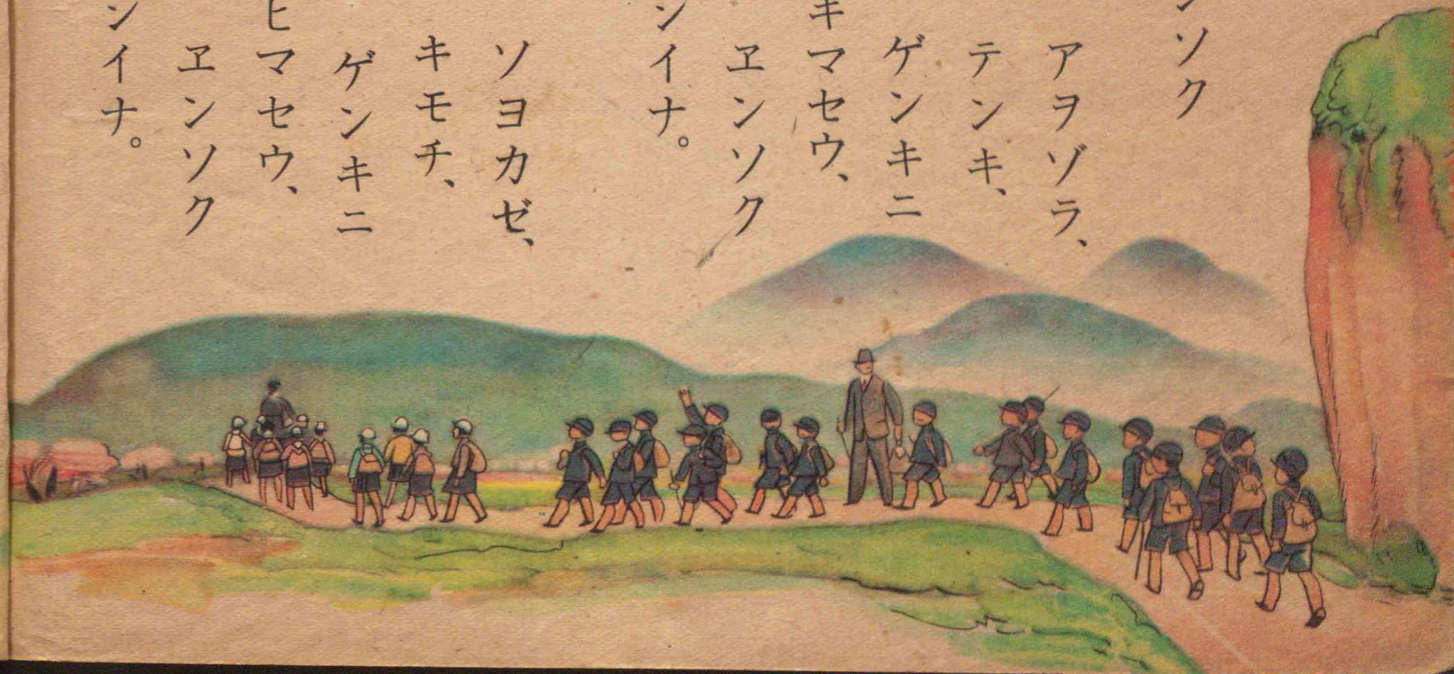 ンソク
アヲゾラ、
テンキ、
ゲンキニ
キマセウ、
ヱンソク
ンイナ。
ソヨカゼ、
キモチ、
ゲンキニ
ヒマセウ、
ヱンソク
ンイナ。